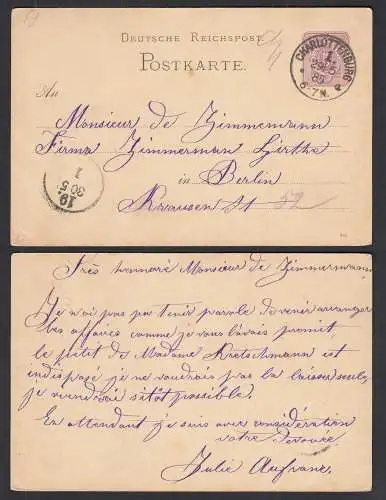 DEUTSCHE REICHSPOST
POSTKARTE.
CHARLOTTENBURG
1.
29 5
85
6-7N.
An
Monsieur de Zimmemann
Firma Zimmerman
in Berlin
Krausen St 52
19.
30/5
1
Très honnoré Monsieur de Zimmermann
Je n'ai pas pu tenir parole de venir arranger
les affaires comme je vous l'avais promit,
le petit de Madame Kretschmann est
indisposé je ne voudrais pas la laisser seule,
je viendrai sitôt possible.
En attendant je suis avec considération
votre Devouée
Julie Aufranc.